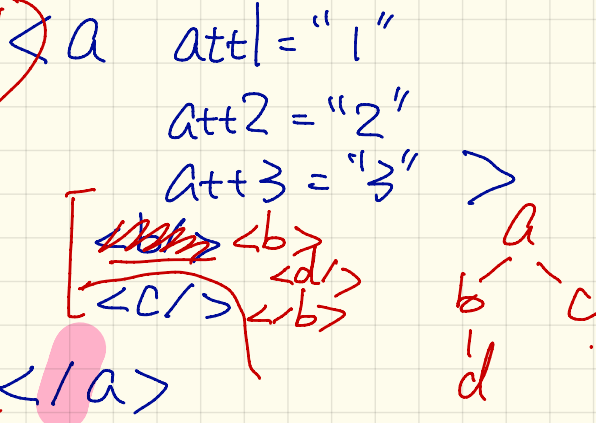 <a att1 = "1"
att2 = "2"
att3 = "3" >
<b>
<d/>
<c/> </b>
</a>
a
b c
d